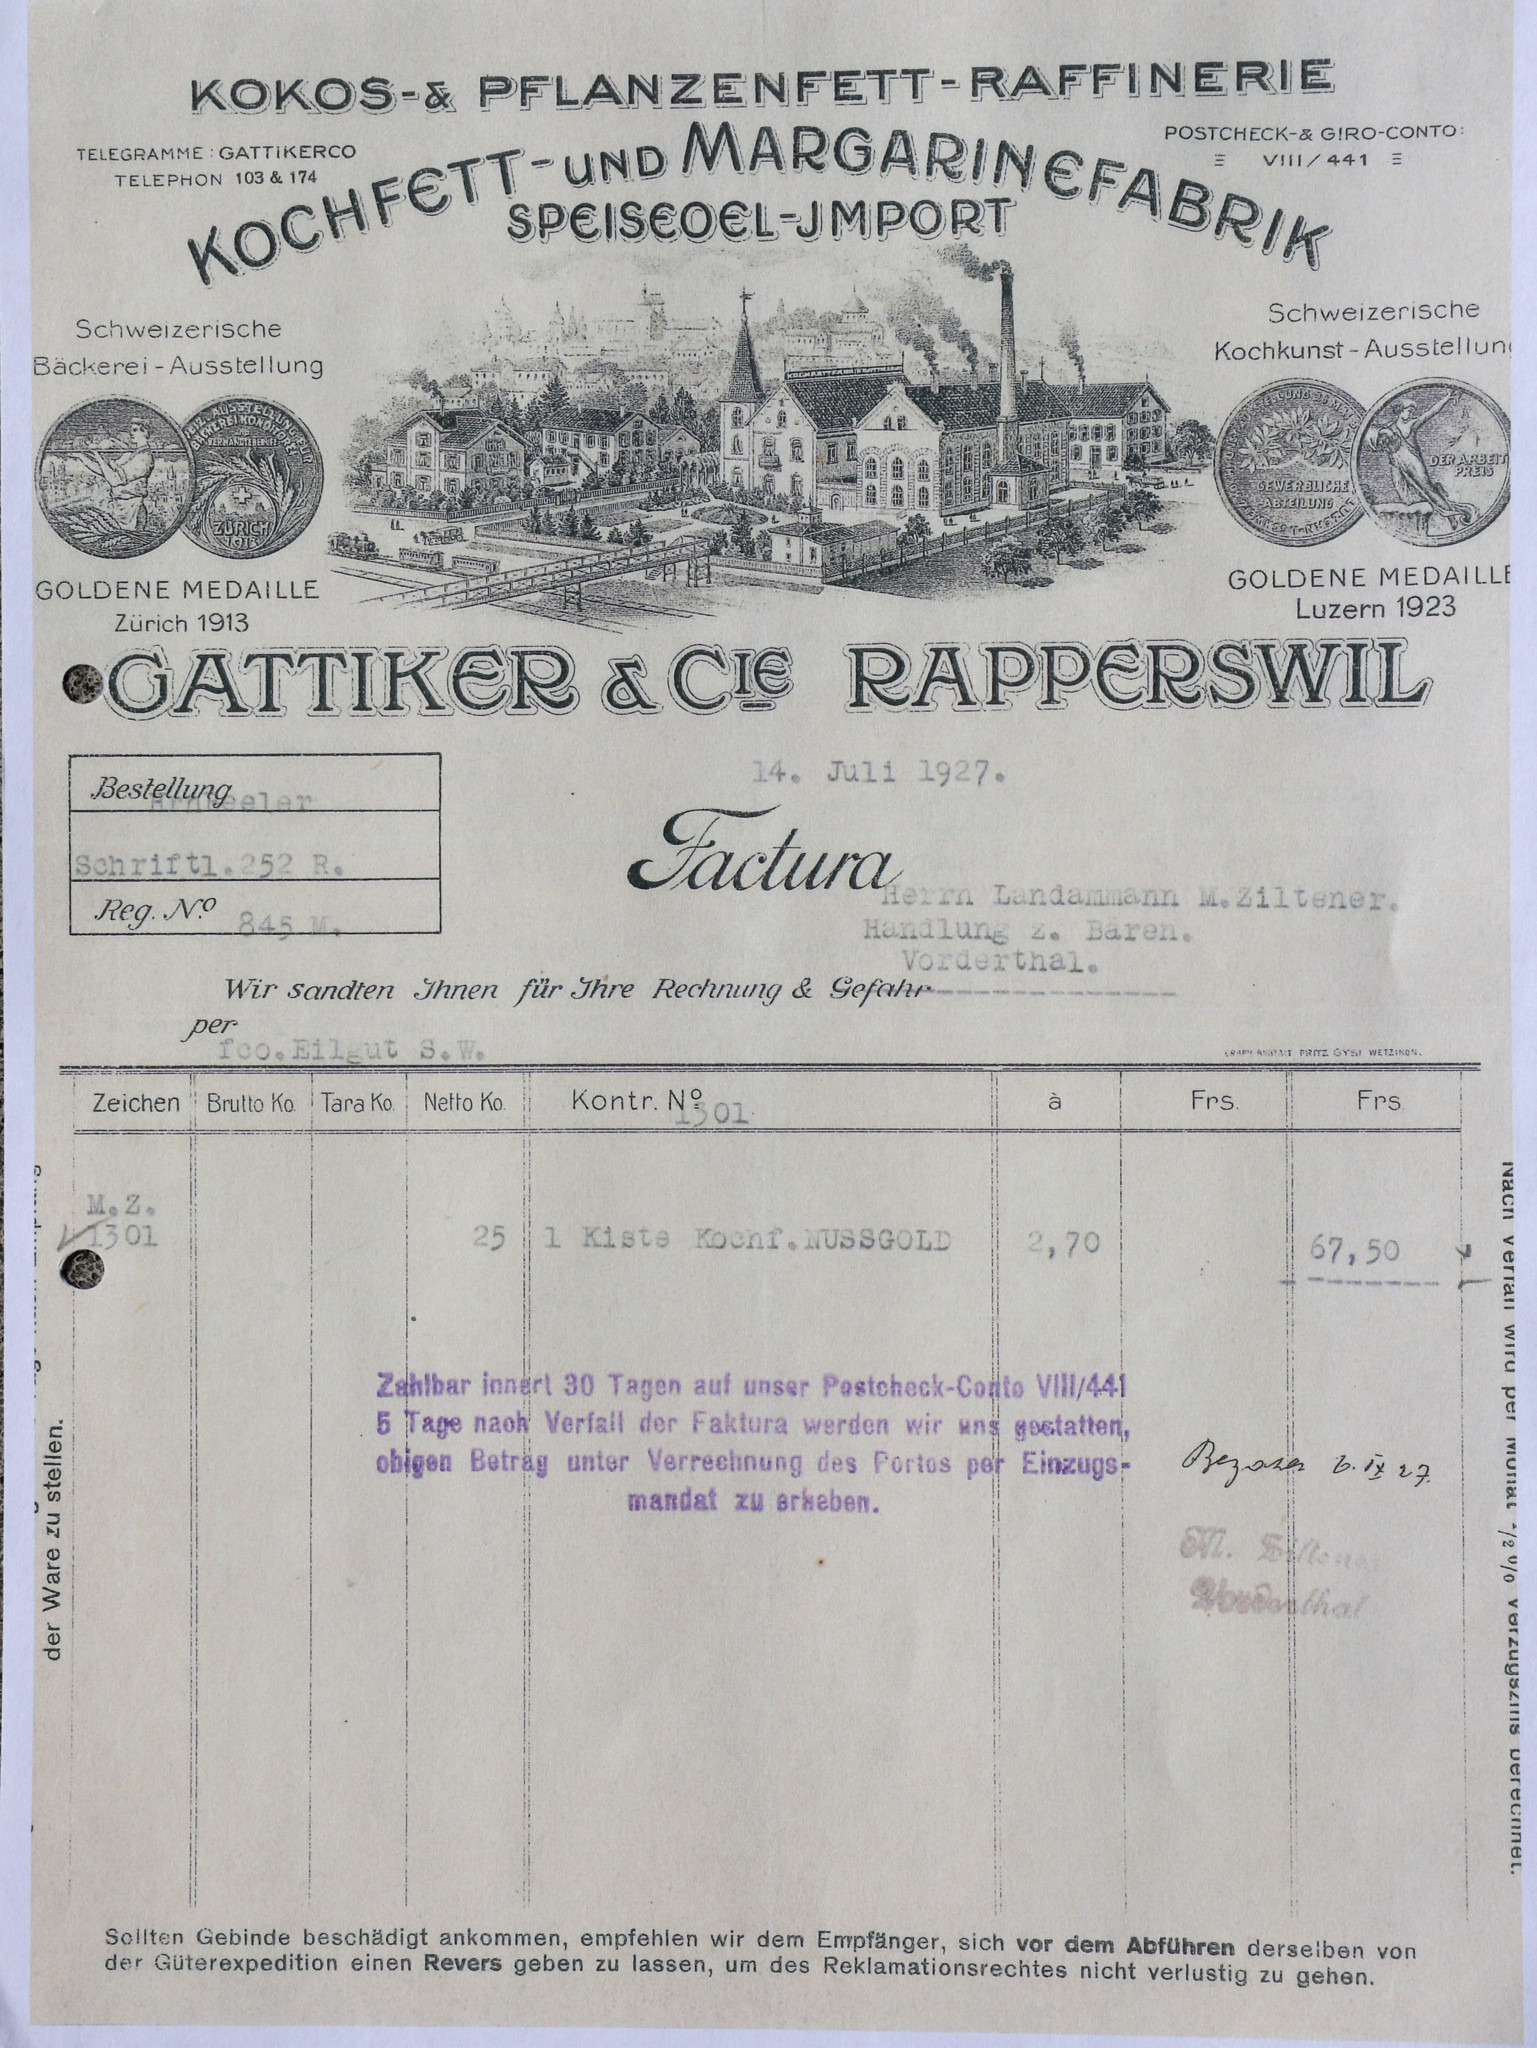 KOKOS-& PFLANZENFETT-RAFFINERIE
TELEGRAMME: GATTIKERCO
TELEPHON 103 & 174
POSTCHECK-& GIRO-CONTO:
VIII/441
KOCHFETT-UND MARGARINEFABRIK
SPEISEOEL-JMPORT
Schweizerische
Bäckerei-Ausstellung
Schweizerische
Kochkunst-Ausstellung
KOCHFETTFABRIK GATTIKER
ZÜRICH
1913
GEWERBLICHE
ABTEILUNG
DER ARBEIT
PREIS
GOLDENE MEDAILLE
Zürich 1913
GOLDENE MEDAILLE
Luzern 1923
GATTIKER & CIE RAPPERSWIL
14. Juli 1927.
Bestellung
Schriftl.252 R.
Reg. No 845 M.
Factura
Herrn Landammann M.Ziltener.
Handlung z. Bären.
Vorderthal.
Wir sandten Ihnen für Ihre Rechnung & Gefahr
per
fco.Eilgut S.W.
GRAPH. ANSTALT FRITZ GYSI WETZIKON.
Zeichen Brutto Ko. Tara Ko. Netto Ko. Kontr. No 1301 à Frs. Frs.
M.Z.
1301 25 1 Kiste Kochf.NUSSGOLD 2,70 67,50
Zahlbar innert 30 Tagen auf unser Postcheck-Conto VIII/441
5 Tage nach Verfall der Faktura werden wir uns gestatten,
obigen Betrag unter Verrechnung des Portos per Einzugs-
mandat zu erheben.
6. IX 27.
M. Ziltener
Vorderthal
der Ware zu stellen.
Nach Verfall wird per Monat 1/2 % Verzugszins berechnet.
Sollten Gebinde beschädigt ankommen, empfehlen wir dem Empfänger, sich vor dem Abführen derselben von
der Güterexpedition einen Revers geben zu lassen, um des Reklamationsrechtes nicht verlustig zu gehen.